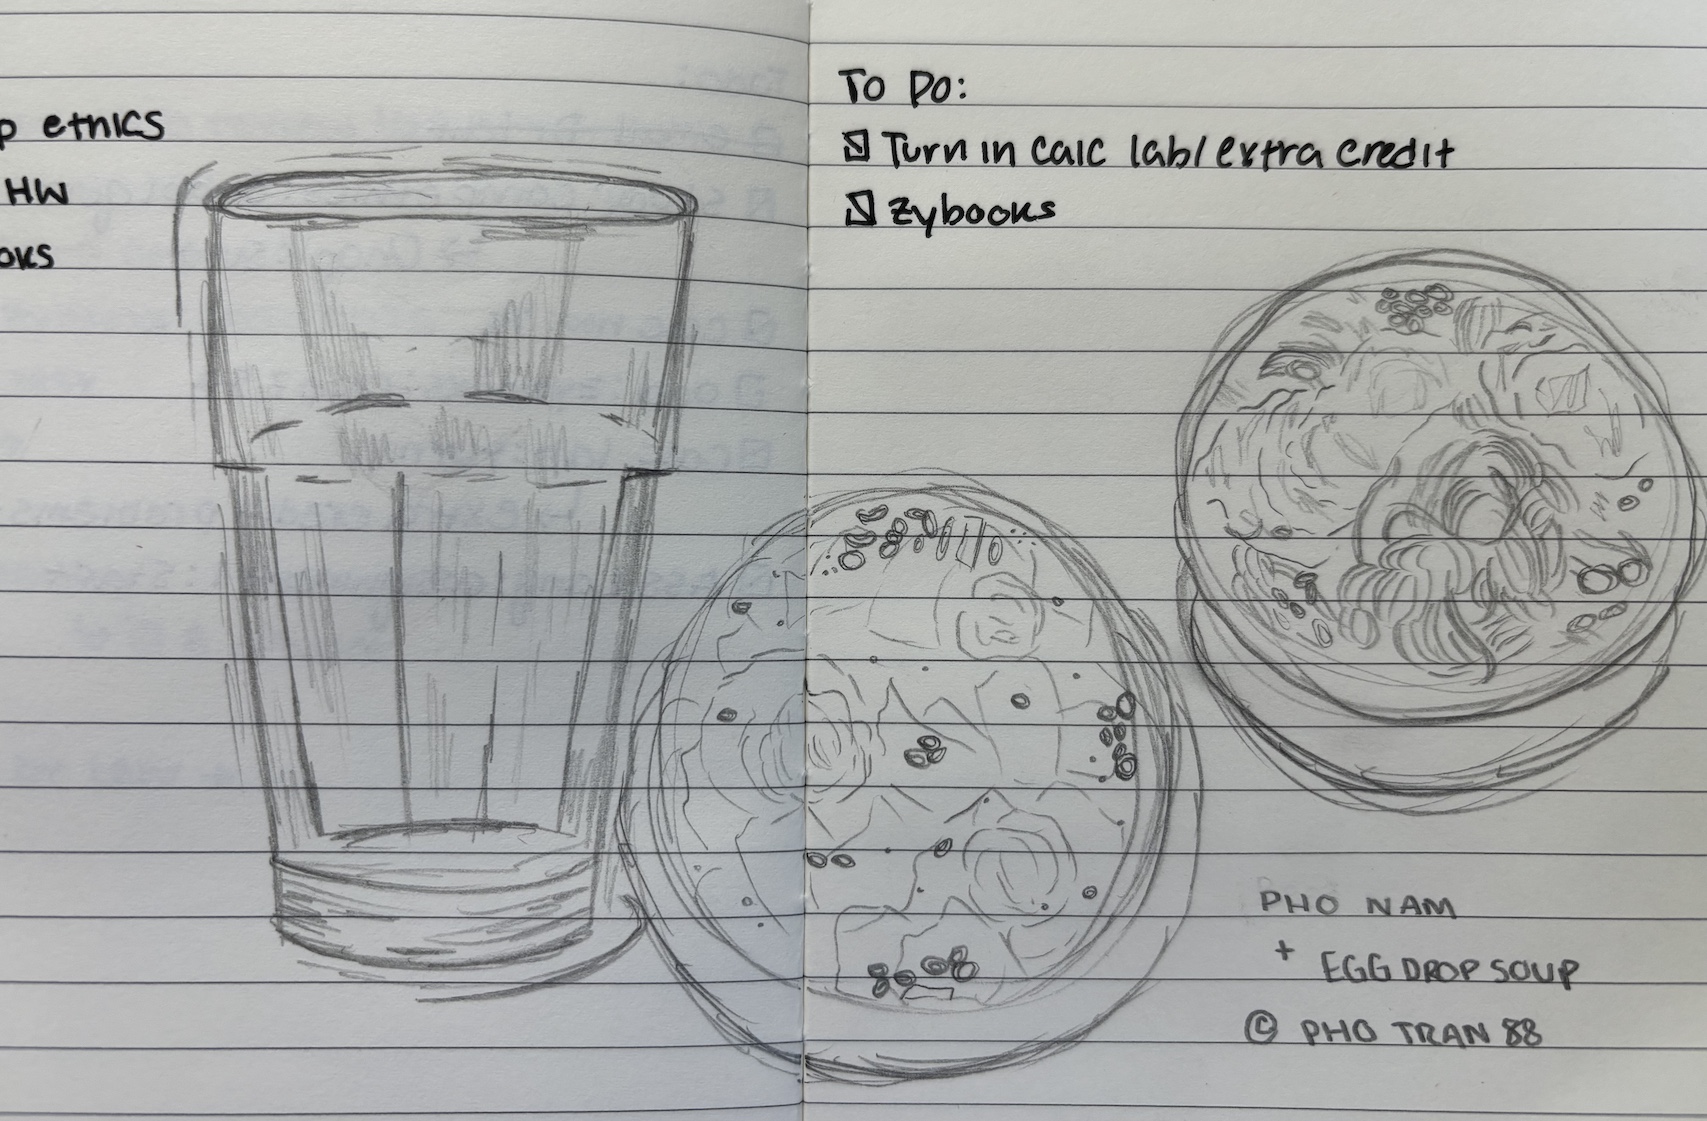 p ethics
HW
oks
To Do:
☑ Turn in calc lab/extra credit
☑ zybooks
PHO NAM
+ EGG DROP SOUP
© PHO TRAN 88